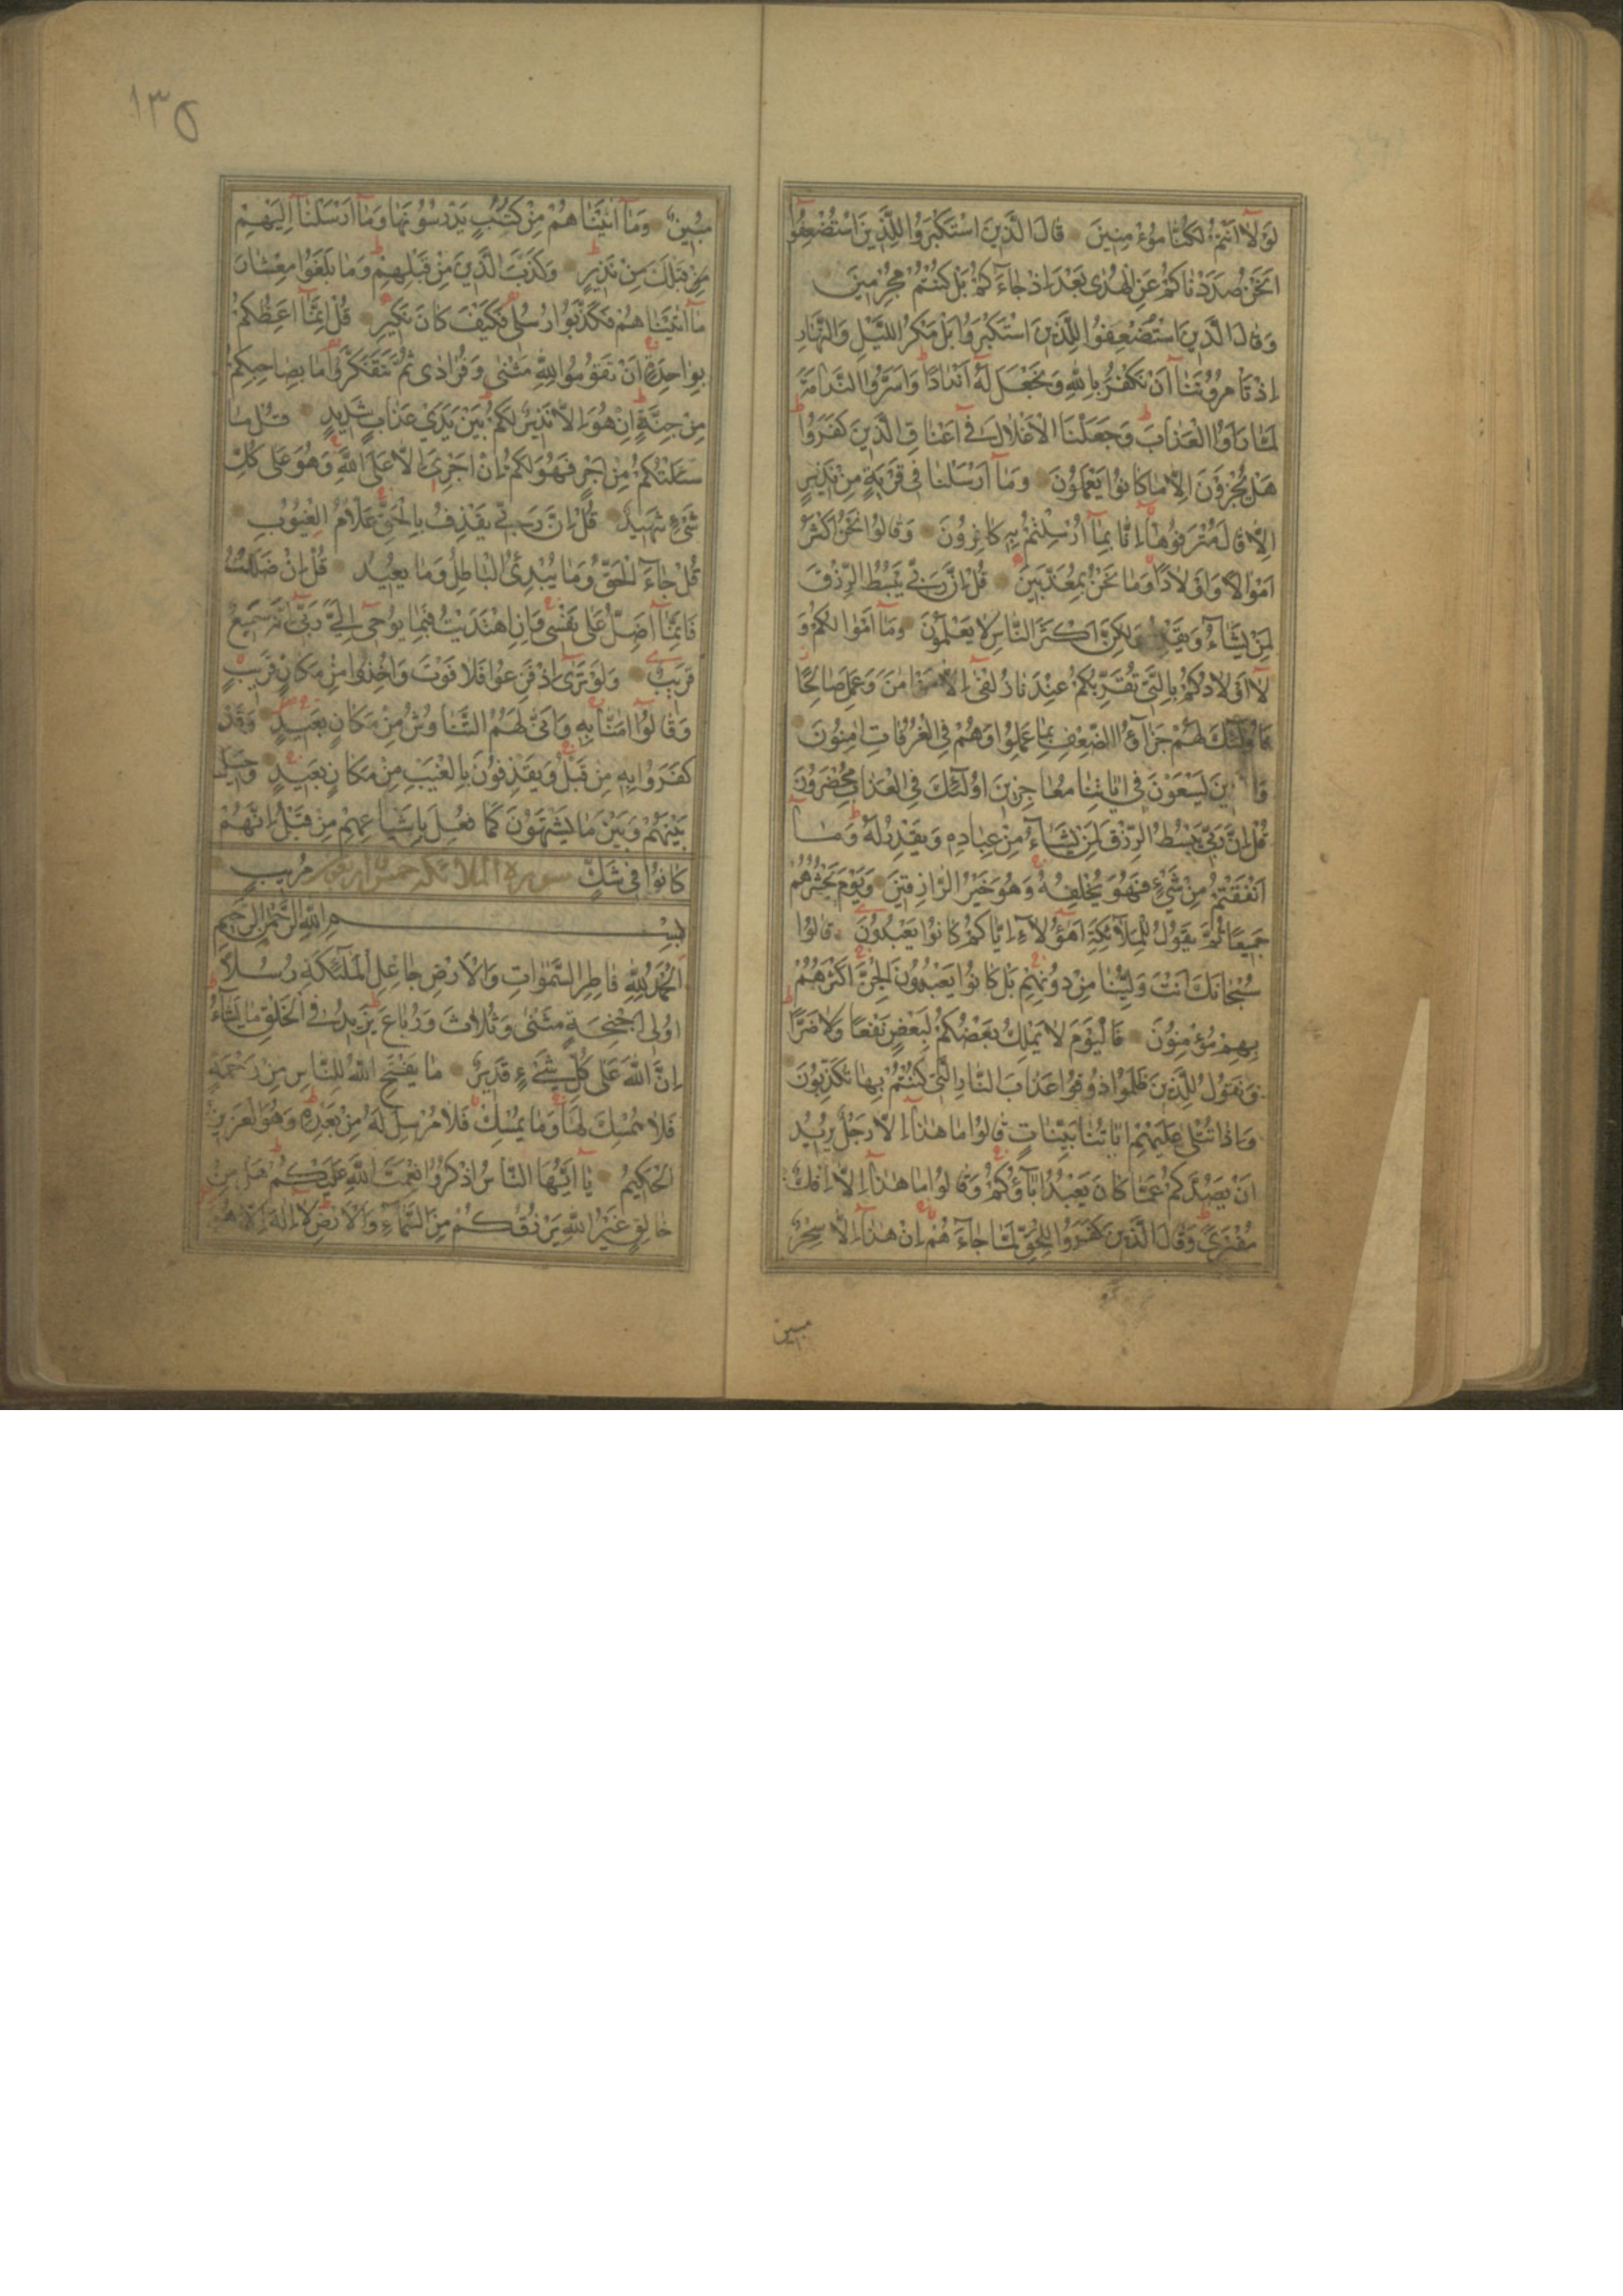 لَوْلَآ اَنْتُمْ لَكُنَّا مُؤْمِنِينَ قَالَ الَّذِينَ اسْتَكْبَرُوا لِلَّذِينَ اسْتُضْعِفُوٓا
اَنَحْنُ صَدَدْنَاكُمْ عَنِ الْهُدٰى بَعْدَ اِذْ جَآءَكُمْ بَلْ كُنْتُمْ مُجْرِمِينَ
وَقَالَ الَّذِينَ اسْتُضْعِفُوا لِلَّذِينَ اسْتَكْبَرُوا بَلْ مَكْرُ اللَّيْلِ وَالنَّهَارِ
اِذْ تَاْمُرُونَنَآ اَنْ نَكْفُرَ بِاللّٰهِ وَنَجْعَلَ لَهُٓ اَنْدَادًا وَاَسَرُّوا النَّدَامَةَ
لَمَّا رَاَوُا الْعَذَابَ وَجَعَلْنَا الْاَغْلَالَ فِىٓ اَعْنَاقِ الَّذِينَ كَفَرُوا
هَلْ يُجْزَوْنَ اِلَّا مَا كَانُوا يَعْمَلُونَ وَمَآ اَرْسَلْنَا فِى قَرْيَةٍ مِنْ نَذِيرٍ
اِلَّا قَالَ مُتْرَفُوهَآ اِنَّا بِمَآ اُرْسِلْتُمْ بِهِ كَافِرُونَ وَقَالُوا نَحْنُ اَكْثَرُ
اَمْوَالًا وَاَوْلَادًا وَمَا نَحْنُ بِمُعَذَّبِينَ قُلْ اِنَّ رَبِّى يَبْسُطُ الرِّزْقَ
لِمَنْ يَشَآءُ وَيَقْدِرُ وَلٰكِنَّ اَكْثَرَ النَّاسِ لَا يَعْلَمُونَ وَمَآ اَمْوَالُكُمْ وَ
لَآ اَوْلَادُكُمْ بِالَّتِى تُقَرِّبُكُمْ عِنْدَنَا زُلْفٰىٓ اِلَّا مَنْ اٰمَنَ وَعَمِلَ صَالِحًا
فَاُولٰٓئِكَ لَهُمْ جَزَآءُ الضِّعْفِ بِمَا عَمِلُوا وَهُمْ فِى الْغُرُفَاتِ اٰمِنُونَ
وَا ينَ يَسْعَوْنَ فِىٓ اٰيَاتِنَا مُعَاجِزِينَ اُولٰٓئِكَ فِى الْعَذَابِ مُحْضَرُونَ
قُلْ اِنَّ رَبِّى يَبْسُطُ الرِّزْقَ لِمَنْ يَشَآءُ مِنْ عِبَادِهِ وَيَقْدِرُ لَهُ وَمَآ
اَنْفَقْتُمْ مِنْ شَىْءٍ فَهُوَ يُخْلِفُهُ وَهُوَ خَيْرُ الرَّازِقِينَ وَيَوْمَ يَحْشُرُهُمْ
جَمِيعًا ثُمَّ يَقُولُ لِلْمَلَآئِكَةِ اَهٰٓؤُلَآءِ اِيَّاكُمْ كَانُوا يَعْبُدُونَ قَالُوا
سُبْحَانَكَ اَنْتَ وَلِيُّنَا مِنْ دُونِهِمْ بَلْ كَانُوا يَعْبُدُونَ الْجِنَّ اَكْثَرُهُمْ
بِهِمْ مُؤْمِنُونَ فَالْيَوْمَ لَا يَمْلِكُ بَعْضُكُمْ لِبَعْضٍ نَفْعًا وَلَا ضَرًّا
وَنَقُولُ لِلَّذِينَ ظَلَمُوا ذُوقُوا عَذَابَ النَّارِ الَّتِى كُنْتُمْ بِهَا تُكَذِّبُونَ
وَاِذَا تُتْلٰى عَلَيْهِمْ اٰيَاتُنَا بَيِّنَاتٍ قَالُوا مَا هٰذَآ اِلَّا رَجُلٌ يُرِيدُ
اَنْ يَصُدَّكُمْ عَمَّا كَانَ يَعْبُدُ اٰبَآؤُكُمْ وَقَالُوا مَا هٰذَآ اِلَّآ اِفْكٌ
مُفْتَرًى وَقَالَ الَّذِينَ كَفَرُوا لِلْحَقِّ لَمَّا جَآءَهُمْ اِنْ هٰذَآ اِلَّا سِحْرٌ
مبين
١٣٥
مُبِينٌ وَمَآ اٰتَيْنَاهُمْ مِنْ كُتُبٍ يَدْرُسُونَهَا وَمَآ اَرْسَلْنَآ اِلَيْهِمْ
مِنْ قَبْلِكَ مِنْ نَذِيرٍ وَكَذَّبَ الَّذِينَ مِنْ قَبْلِهِمْ وَمَا بَلَغُوا مِعْشَارَ
مَآ اٰتَيْنَاهُمْ فَكَذَّبُوا رُسُلِى فَكَيْفَ كَانَ نَكِيرِ قُلْ اِنَّمَآ اَعِظُكُمْ
بِوَاحِدَةٍ اَنْ تَقُومُوا لِلّٰهِ مَثْنٰى وَفُرَادٰى ثُمَّ تَتَفَكَّرُوا مَا بِصَاحِبِكُمْ
مِنْ جِنَّةٍ اِنْ هُوَ اِلَّا نَذِيرٌ لَكُمْ بَيْنَ يَدَىْ عَذَابٍ شَدِيدٍ قُلْ مَا
سَئَلْتُكُمْ مِنْ اَجْرٍ فَهُوَ لَكُمْ اِنْ اَجْرِىَ اِلَّا عَلَى اللّٰهِ وَهُوَ عَلٰى كُلِّ
شَىْءٍ شَهِيدٌ قُلْ اِنَّ رَبِّى يَقْذِفُ بِالْحَقِّ عَلَّامُ الْغُيُوبِ
قُلْ جَآءَ الْحَقُّ وَمَا يُبْدِئُ الْبَاطِلُ وَمَا يُعِيدُ قُلْ اِنْ ضَلَلْتُ
فَاِنَّمَآ اَضِلُّ عَلٰى نَفْسِى وَاِنِ اهْتَدَيْتُ فَبِمَا يُوحِىٓ اِلَىَّ رَبِّى اِنَّهُ سَمِيعٌ
قَرِيبٌ وَلَوْ تَرٰىٓ اِذْ فَزِعُوا فَلَا فَوْتَ وَاُخِذُوا مِنْ مَكَانٍ قَرِيبٍ
وَقَالُوٓا اٰمَنَّا بِهِ وَاَنّٰى لَهُمُ التَّنَاوُشُ مِنْ مَكَانٍ بَعِيدٍ وَقَدْ
كَفَرُوا بِهِ مِنْ قَبْلُ وَيَقْذِفُونَ بِالْغَيْبِ مِنْ مَكَانٍ بَعِيدٍ وَحِيلَ
بَيْنَهُمْ وَبَيْنَ مَا يَشْتَهُونَ كَمَا فُعِلَ بِاَشْيَاعِهِمْ مِنْ قَبْلُ اِنَّهُمْ
كَانُوا فِى شَكٍّ سورة الملائكة خمس اربعون مُرِيبٍ
بِسْمِ اللّٰهِ الرَّحْمٰنِ الرَّحِيمِ
اَلْحَمْدُ لِلّٰهِ فَاطِرِ السَّمٰوَاتِ وَالْاَرْضِ جَاعِلِ الْمَلٰٓئِكَةِ رُسُلًا
اُولِىٓ اَجْنِحَةٍ مَثْنٰى وَثُلَاثَ وَرُبَاعَ يَزِيدُ فِى الْخَلْقِ مَا يَشَآءُ
اِنَّ اللّٰهَ عَلٰى كُلِّ شَىْءٍ قَدِيرٌ مَا يَفْتَحِ اللّٰهُ لِلنَّاسِ مِنْ رَحْمَةٍ
فَلَا مُمْسِكَ لَهَا وَمَا يُمْسِكْ فَلَا مُرْسِلَ لَهُ مِنْ بَعْدِهِ وَهُوَ الْعَزِيزُ
الْحَكِيمُ يَآ اَيُّهَا النَّاسُ اذْكُرُوا نِعْمَتَ اللّٰهِ عَلَيْكُمْ هَلْ مِنْ
خَالِقٍ غَيْرُ اللّٰهِ يَرْزُقُكُمْ مِنَ السَّمَآءِ وَالْاَرْضِ لَآ اِلٰهَ اِلَّا هُوَ